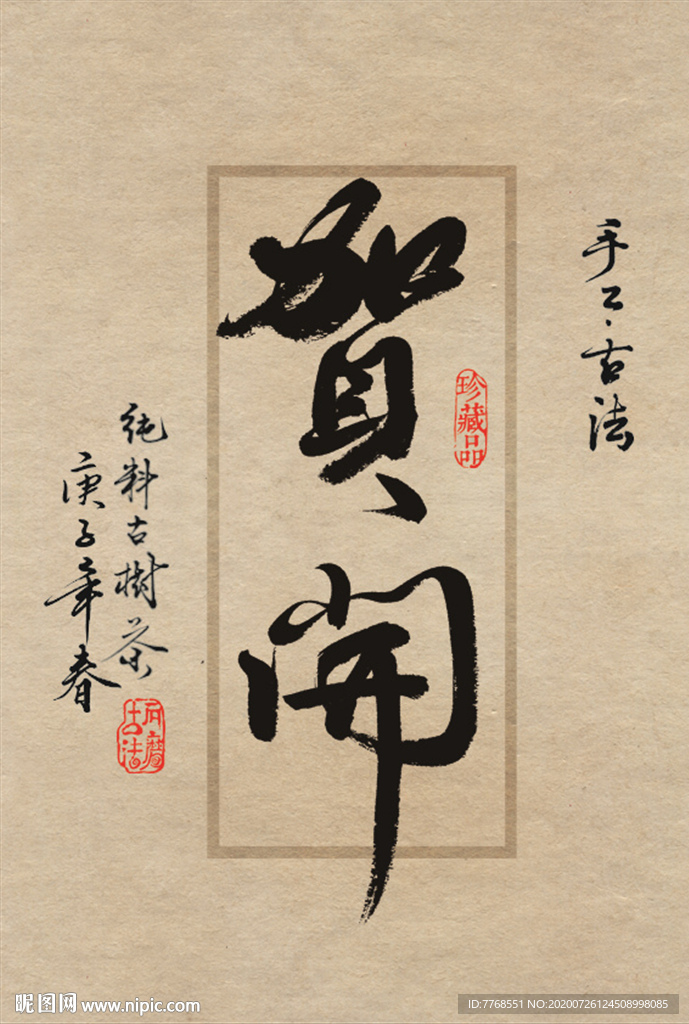 手工·古法
賀開
珍藏品
純料古樹茶
庚子年春
石磨古法
昵图网 www.nipic.com
ID:7768551 NO:20200726124508998085